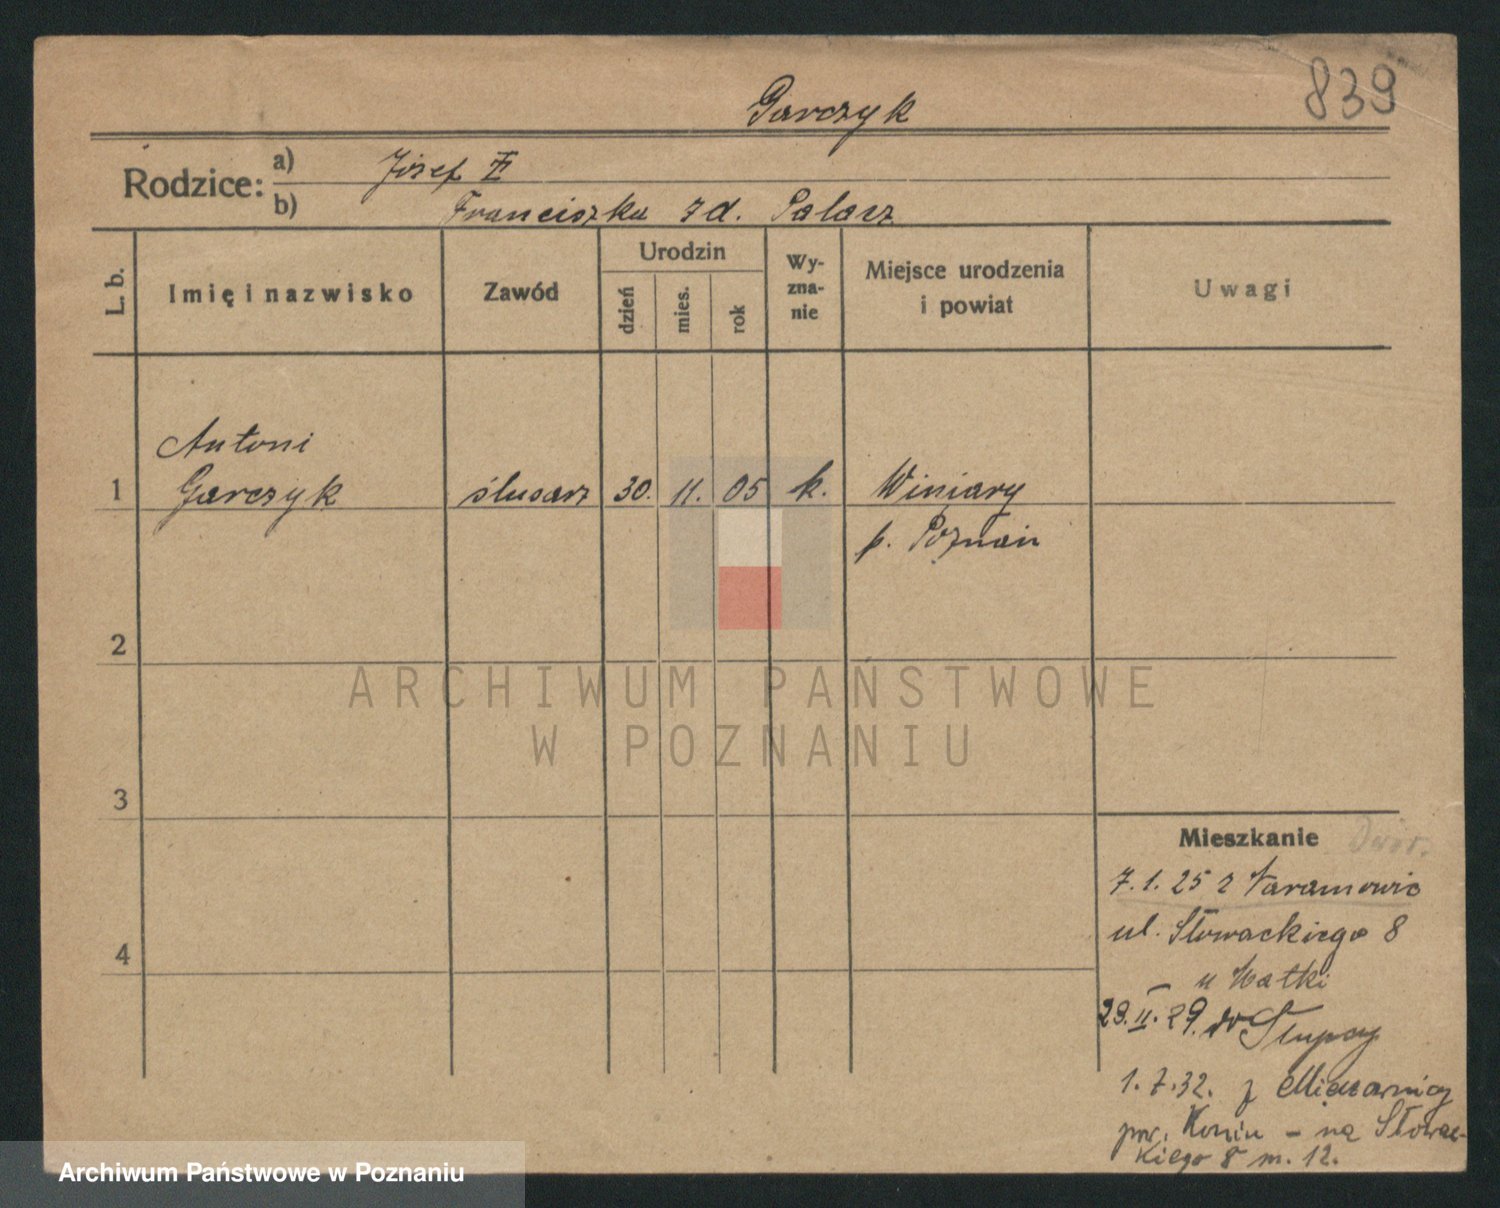 839
Garczyk
Rodzice: a) Józef
b) Franciszka zd. Palacz
L. b.
Imię i nazwisko
Zawód
Urodzin
dzień
mies.
rok
Wy-
zna-
nie
Miejsce urodzenia
i powiat
Uwagi
Antoni
1 Garczyk ślusarz 30. 11. 05 k. Winiary
p. Poznań
2
3
4
Mieszkanie
7.1.25 z Naramowic
ul. Słowackiego 8
u Matki
29.II.29. do Słupcy
1.7.32. z
pow. Konin – na Słowac-
kiego 8 m. 12.
ARCHIWUM PAŃSTWOWE
W POZNANIU
Archiwum Państwowe w Poznaniu